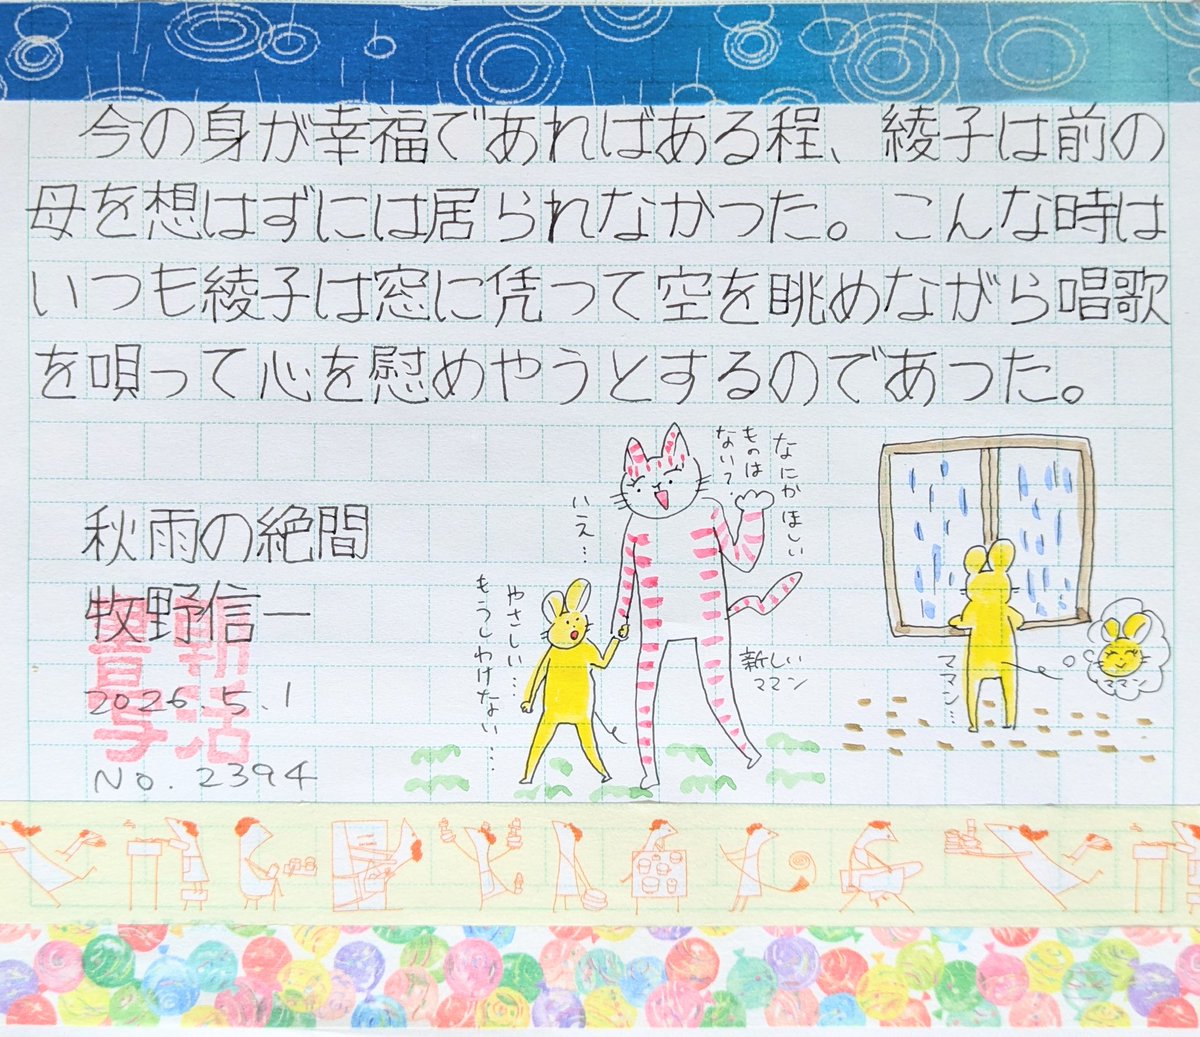 今の身が幸福であればある程、綾子は前の
母を想はずには居られなかった。こんな時は
いつも綾子は窓に凭って空を眺めながら唱歌
を唄って心を慰めやうとするのであった。
秋雨の絶間
牧野信一
2026.5.1
No. 2394
朝活
書写
なにかほしい
ものは
ない?
いえ…
やさしい…
もうしわけない…
新しい
ママン
ママン…
ママン